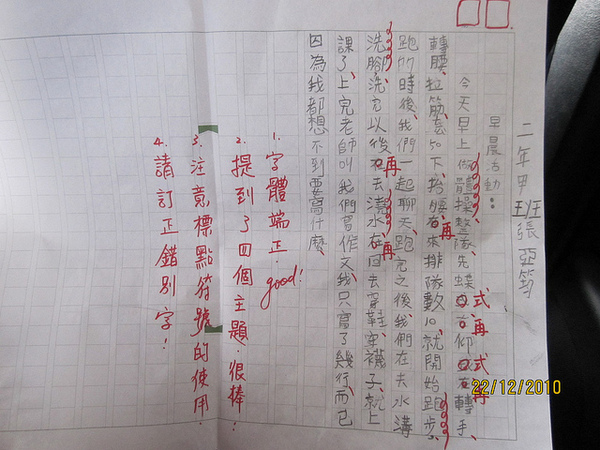 二年甲班張亞筠
早晨活動:
今天早上做體操整隊先蝶式再仰式再轉手、
轉腰、拉筋 50下、抬腰再來排隊數10就開始跑步、
跑的時後、我們一起聊天、跑完之後、我們在去水溝
洗腳洗完以後再去澆水再回去穿鞋、穿襪子、就上
課了、上完老師叫我們寫作文、我只寫了幾行、而已
因為我都想不到要寫什麼、
1. 字體端正. good!
2. 提到了四個主題.很棒.
3. 注意標點符號的使用.
4. 請訂正錯別字!
22/12/2010